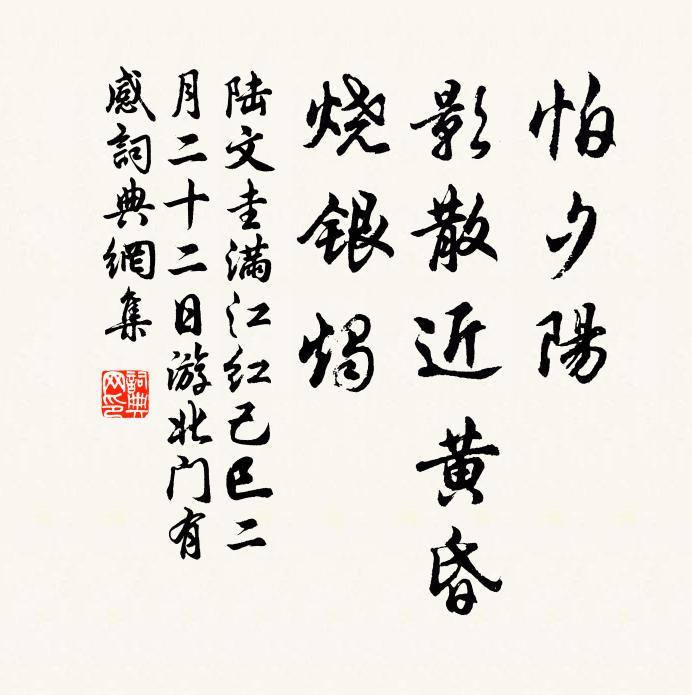 怕夕陽
影散近黄昏
烧銀燭
陆文圭满江红己巳二
月二十二日游北门有
感詞典網集
詞典
网印